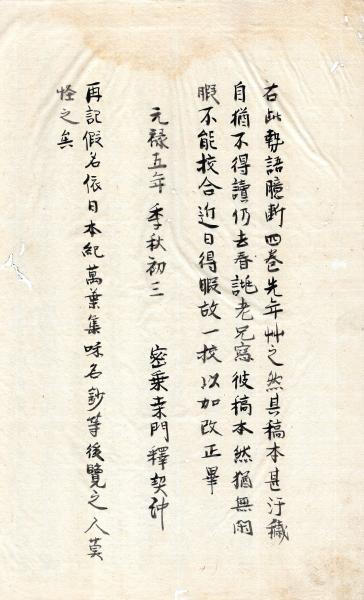 右此勢語臆断四巻先年艸之然其稿本甚汙穢
自猶不得讀仍去春誂老兄寫彼稿本然猶無閑
暇不能挍合近日得暇故一挍以加改正畢
元禄五年季秋初三　密乗桒門釋契沖
再記假名依日本紀萬葉集味名鈔等後覽之人莫
怪之矣